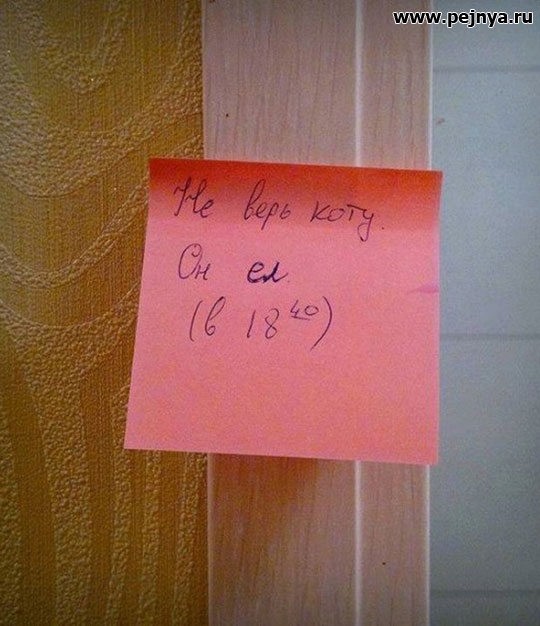 www.pejnya.ru
Не верь коту.
Он ел.
(в 18⁴⁰)